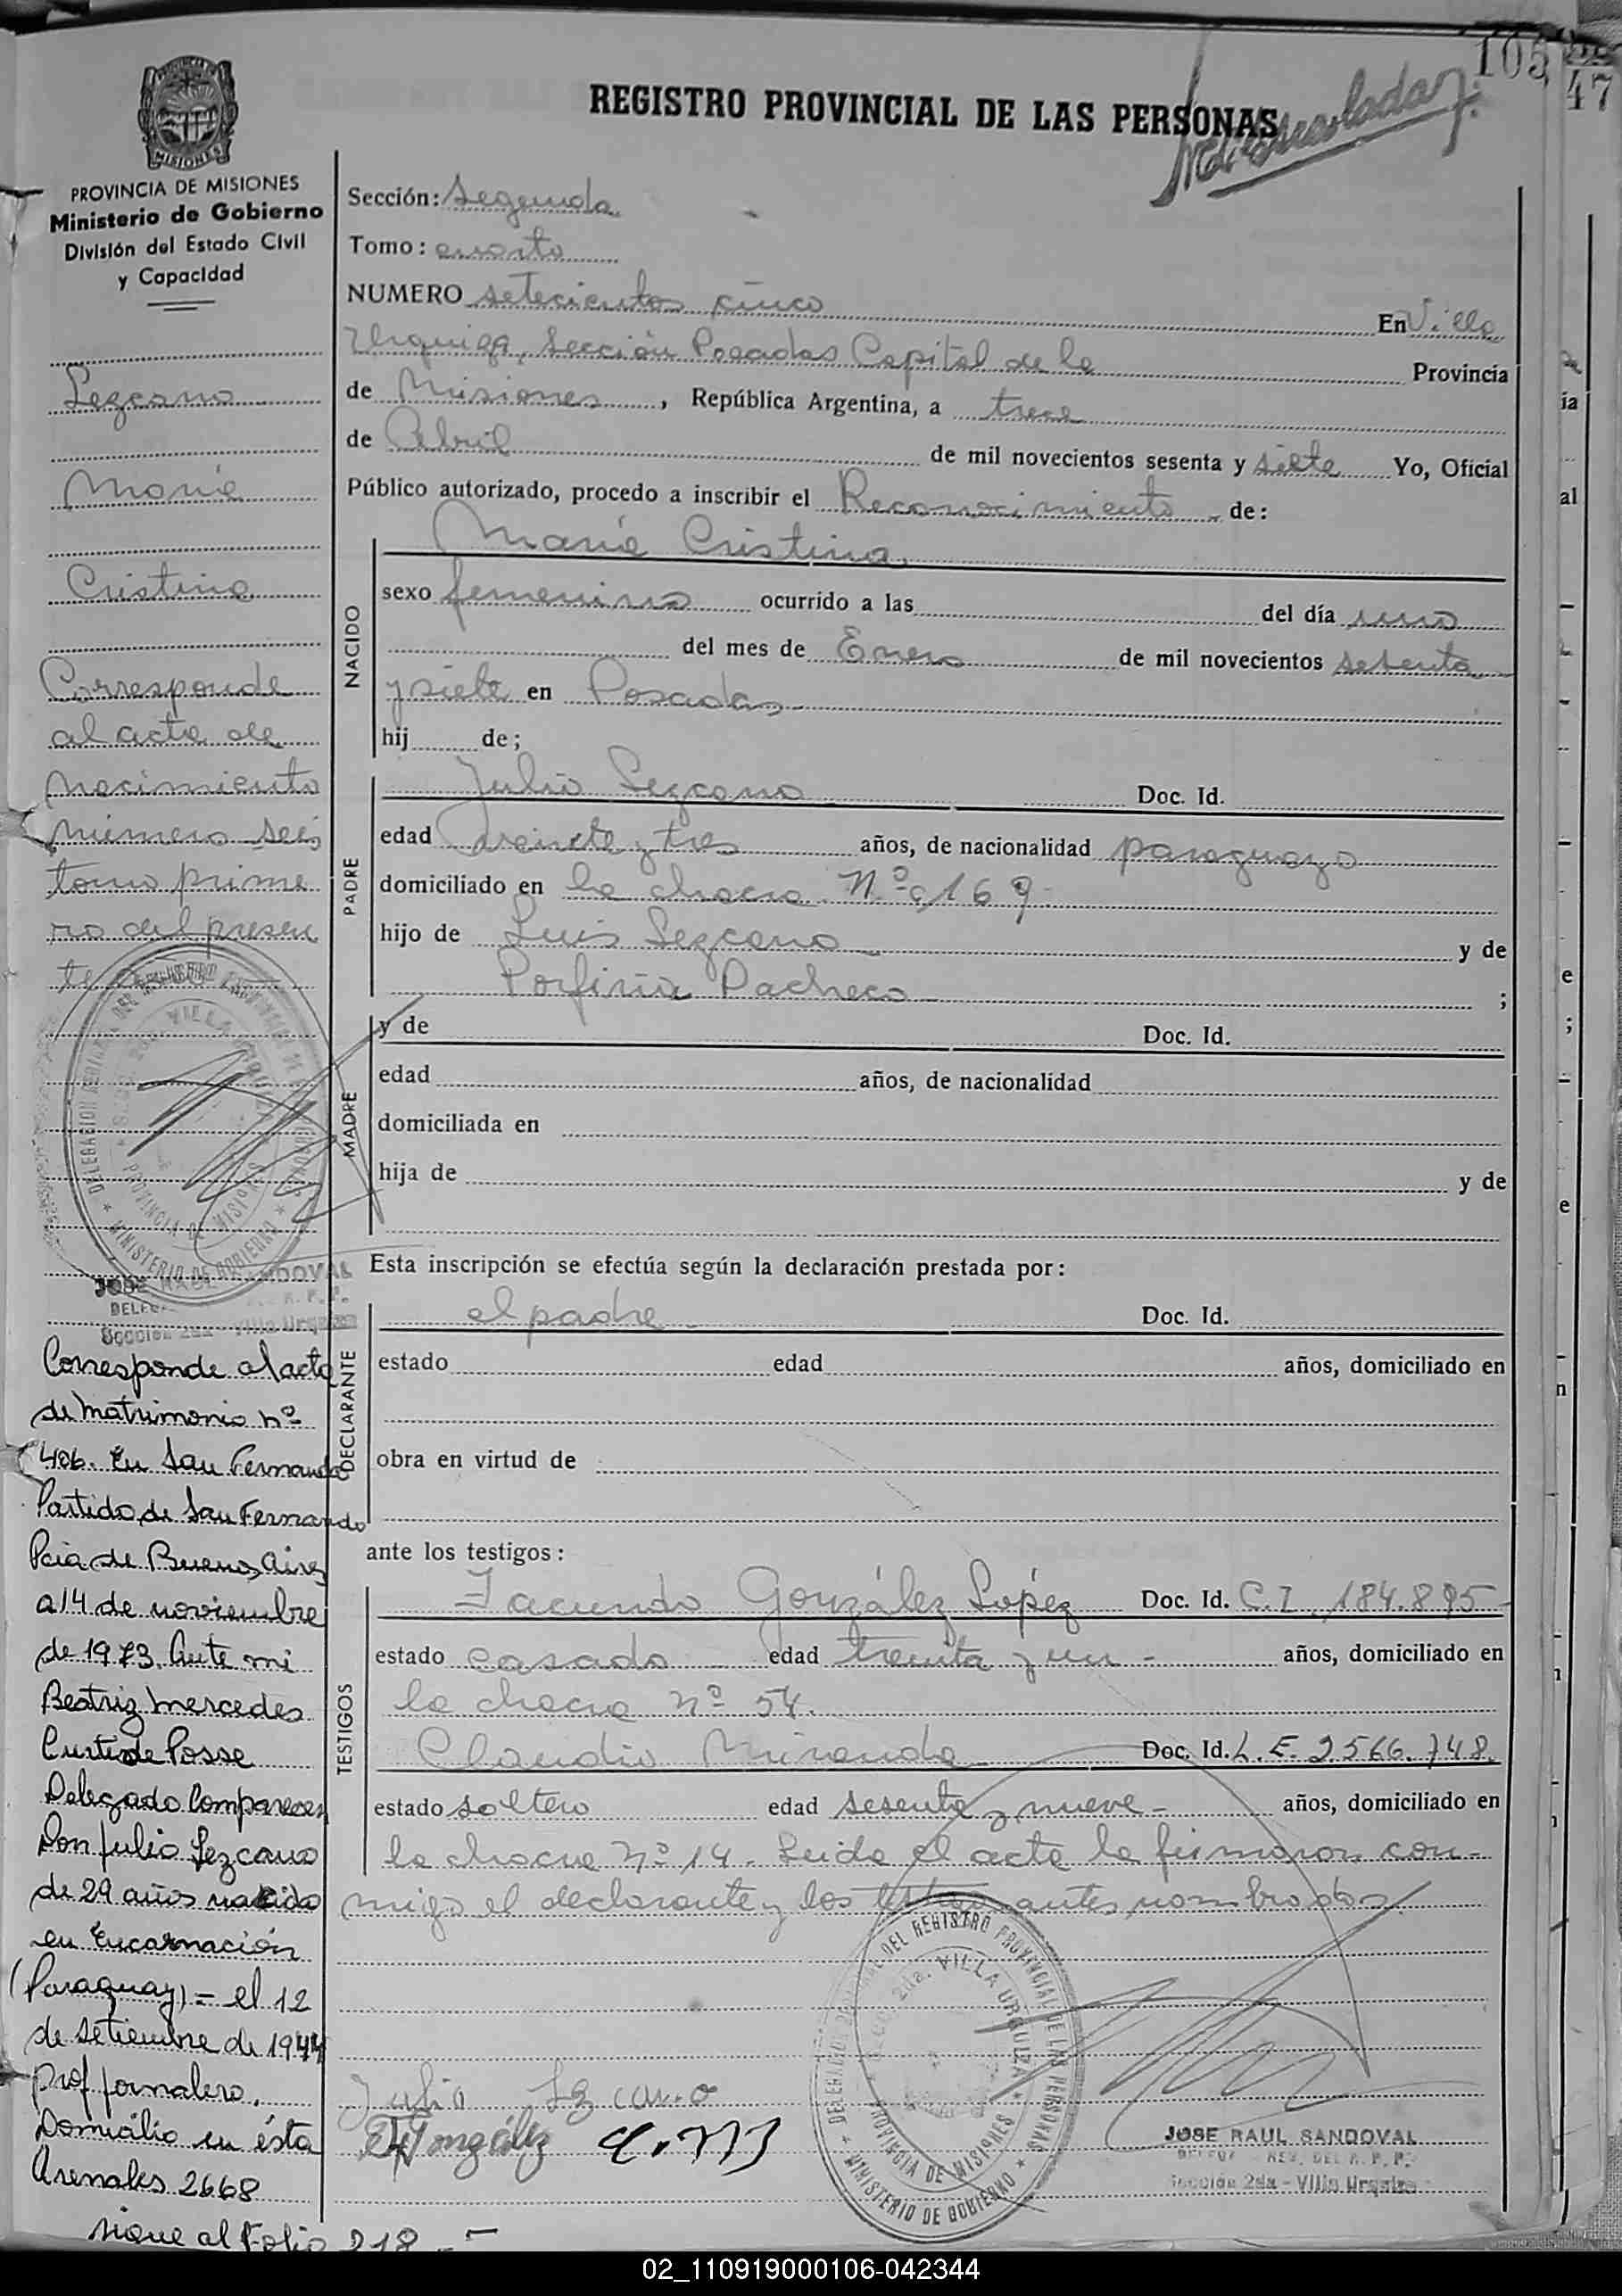 105
47
REGISTRO PROVINCIAL DE LAS PERSONAS
PROVINCIA DE MISIONES
Ministerio de Gobierno
División del Estado Civil
y Capacidad
Lezcano
María
Cristina
Corresponde
al acta de
nacimiento
número seis
tomo prime
ro del presen
te
VILLA URQUIZA
PROVINCIA DE MISIONES
MINISTERIO DE GOBIERNO
JOSE RAUL SANDOVAL
Sección 2da - Villa Urquiza
Corresponde al acta
de Matrimonio nº
406. En San Fernando
Partido de San Fernando
Pcia de Buenos Aires
a 14 de noviembre
de 1973. Ante mi
Beatriz Mercedes
Posse
Delegado Comparecen
Don Julio Lezcano
de 29 años nacido
en Encarnación
(Paraguay) = el 12
de setiembre de 1944
Prof jornalero.
Domicilio en ésta
Arenales 2668
sigue al Folio 218 . -
Sección: Segunda
Tomo: cuarto
NUMERO setecientos cinco En Villa
Urquiza, Sección Posadas Capital de la Provincia
de Misiones, República Argentina, a trece
de Abril de mil novecientos sesenta y siete Yo, Oficial
Público autorizado, procedo a inscribir el Reconocimiento - de:
NACIDO
María Cristina.
sexo femenino ocurrido a las del día uno
del mes de Enero de mil novecientos sesenta
y siete en Posadas.
hij de;
PADRE
Julio Lezcano Doc. Id.
edad veinte y tres años, de nacionalidad paraguayo
domiciliado en la chacra Nº 169.
hijo de Luis Lezcano y de
Porfiria Pacheco ;
MADRE
y de Doc. Id.
edad años, de nacionalidad
domiciliada en
hija de y de
Esta inscripción se efectúa según la declaración prestada por:
DECLARANTE
el padre Doc. Id.
estado edad años, domiciliado en
obra en virtud de
ante los testigos:
TESTIGOS
Facundo González López Doc. Id. C.I. 184.895
estado casado edad treinta y un - años, domiciliado en
la chacra nº 54.
Claudio Miranda Doc. Id. L.E. 2566.748.
estado soltero edad sesenta y nueve - años, domiciliado en
la chacra Nº 14. Leida el acta la firmaron con-
migo el declarante y los testigos antes nombrados.
DEL REGISTRO PROVINCIAL DE LAS PERSONAS
Secc. 2da. VILLA URQUIZA
PROVINCIA DE MISIONES
MINISTERIO DE GOBIERNO
Julio Lezcano
González
JOSE RAUL SANDOVAL
Sección 2da - Villa Urquiza
02_110919000106-042344